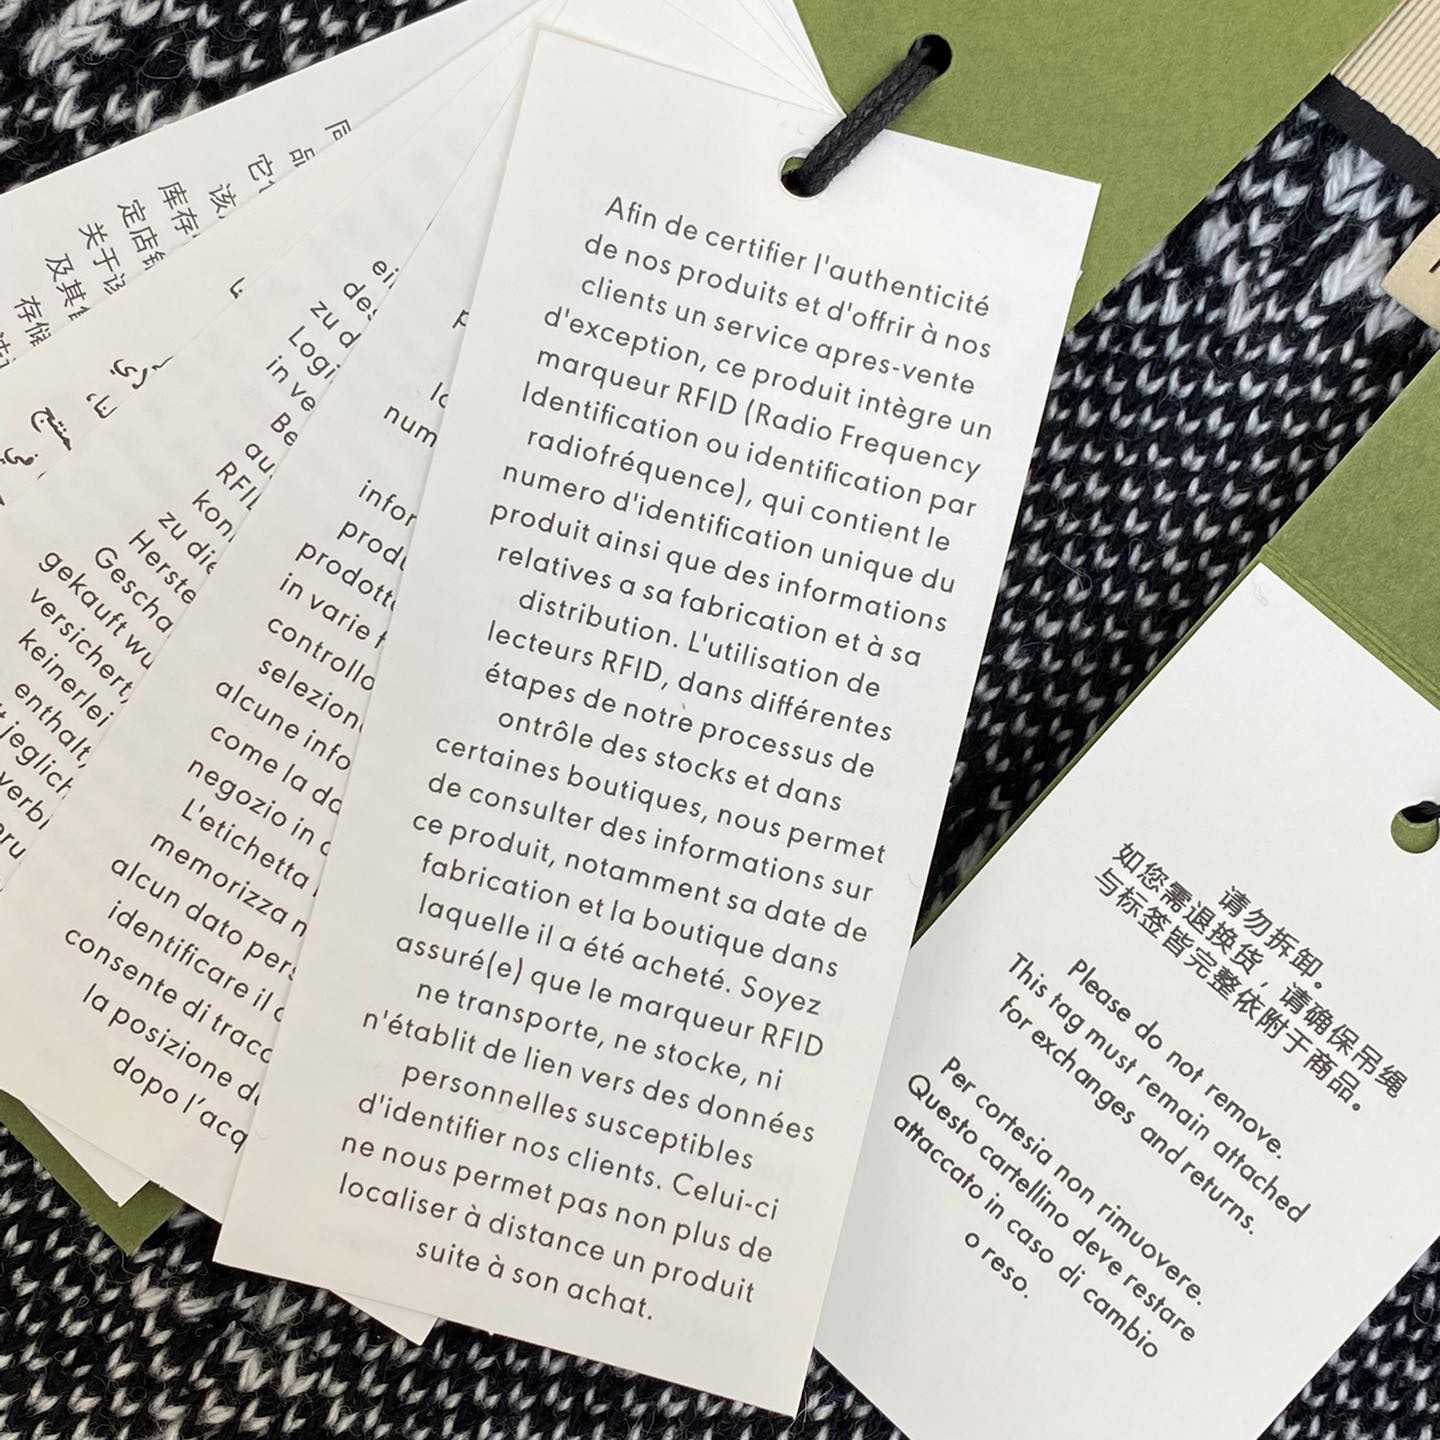 Afin de certifier l'authenticité
de nos produits et d'offrir à nos
clients un service apres-vente
d'exception, ce produit intègre un
marqueur RFID (Radio Frequency
Identification ou identification par
radiofréquence), qui contient le
numero d'identification unique du
produit ainsi que des informations
relatives a sa fabrication et à sa
distribution. L'utilisation de
lecteurs RFID, dans différentes
étapes de notre processus de
ontrôle des stocks et dans
certaines boutiques, nous permet
de consulter des informations sur
ce produit, notamment sa date de
fabrication et la boutique dans
laquelle il a été acheté. Soyez
assuré(e) que le marqueur RFID
ne transporte, ne stocke, ni
n'établit de lien vers des données
personnelles susceptibles
d'identifier nos clients. Celui-ci
ne nous permet pas non plus de
localiser à distance un produit
suite à son achat.
请勿拆卸。
如您需退换货，请确保吊绳
与标签皆完整依附于商品。
Please do not remove.
This tag must remain attached
for exchanges and returns.
Per cortesia non rimuovere.
Questo cartellino deve restare
attaccato in caso di cambio
o reso.
infor
prod
prodott
in varie
controllo
selezion
alcune info
come la da
negozio in
L'etichetta
memorizza n
alcun dato pers
identificare il
consente di tracc
la posizione d
dopo l'acq
ei
des
zu d
Logi
in ve
Be
au
RFI
kon
zu die
Herste
Gescha
gekauft wu
versichert,
keinerlei
enthalt,
jeglich
verbi
库存
定店
关于
及其
存储
منتج